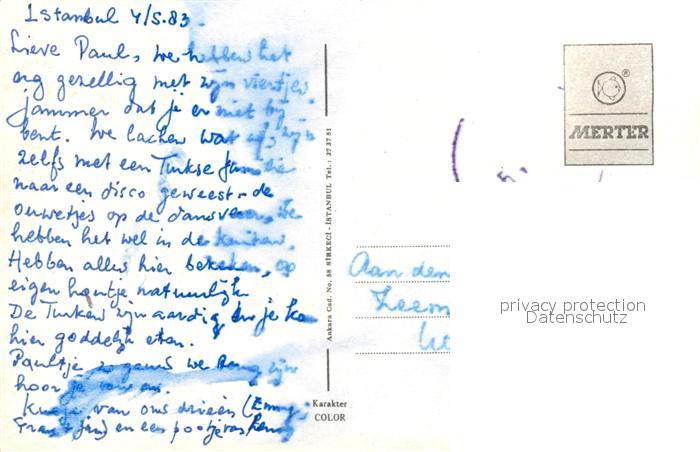 Istanbul 4/5.83.
Lieve Paul, we hebben het
erg gezellig met zijn viertjes
jammer dat je er niet bij
bent. We lachen wat af, zijn
zelfs met een Turkse familie
naar een disco geweest - de
ouwetjes op de dansvloer, we
hebben het wel in de
Hebben alles hier bekeken, op
eigen houtje natuurlijk
De Turken zijn aardig en je kan
hier goddelijk eten.
Paultje zo gauw we terug zijn
hoor je van ons.
Kusje van ons drieën (Emmy,
Frans + Jan) en een pootje van
Ankara Cad. No. 58 SİRKECİ - İSTANBUL Tel.: 27 37 51
Karakter
COLOR
®
MERTER
Aan den
Zeem
privacy protection
Datenschutz